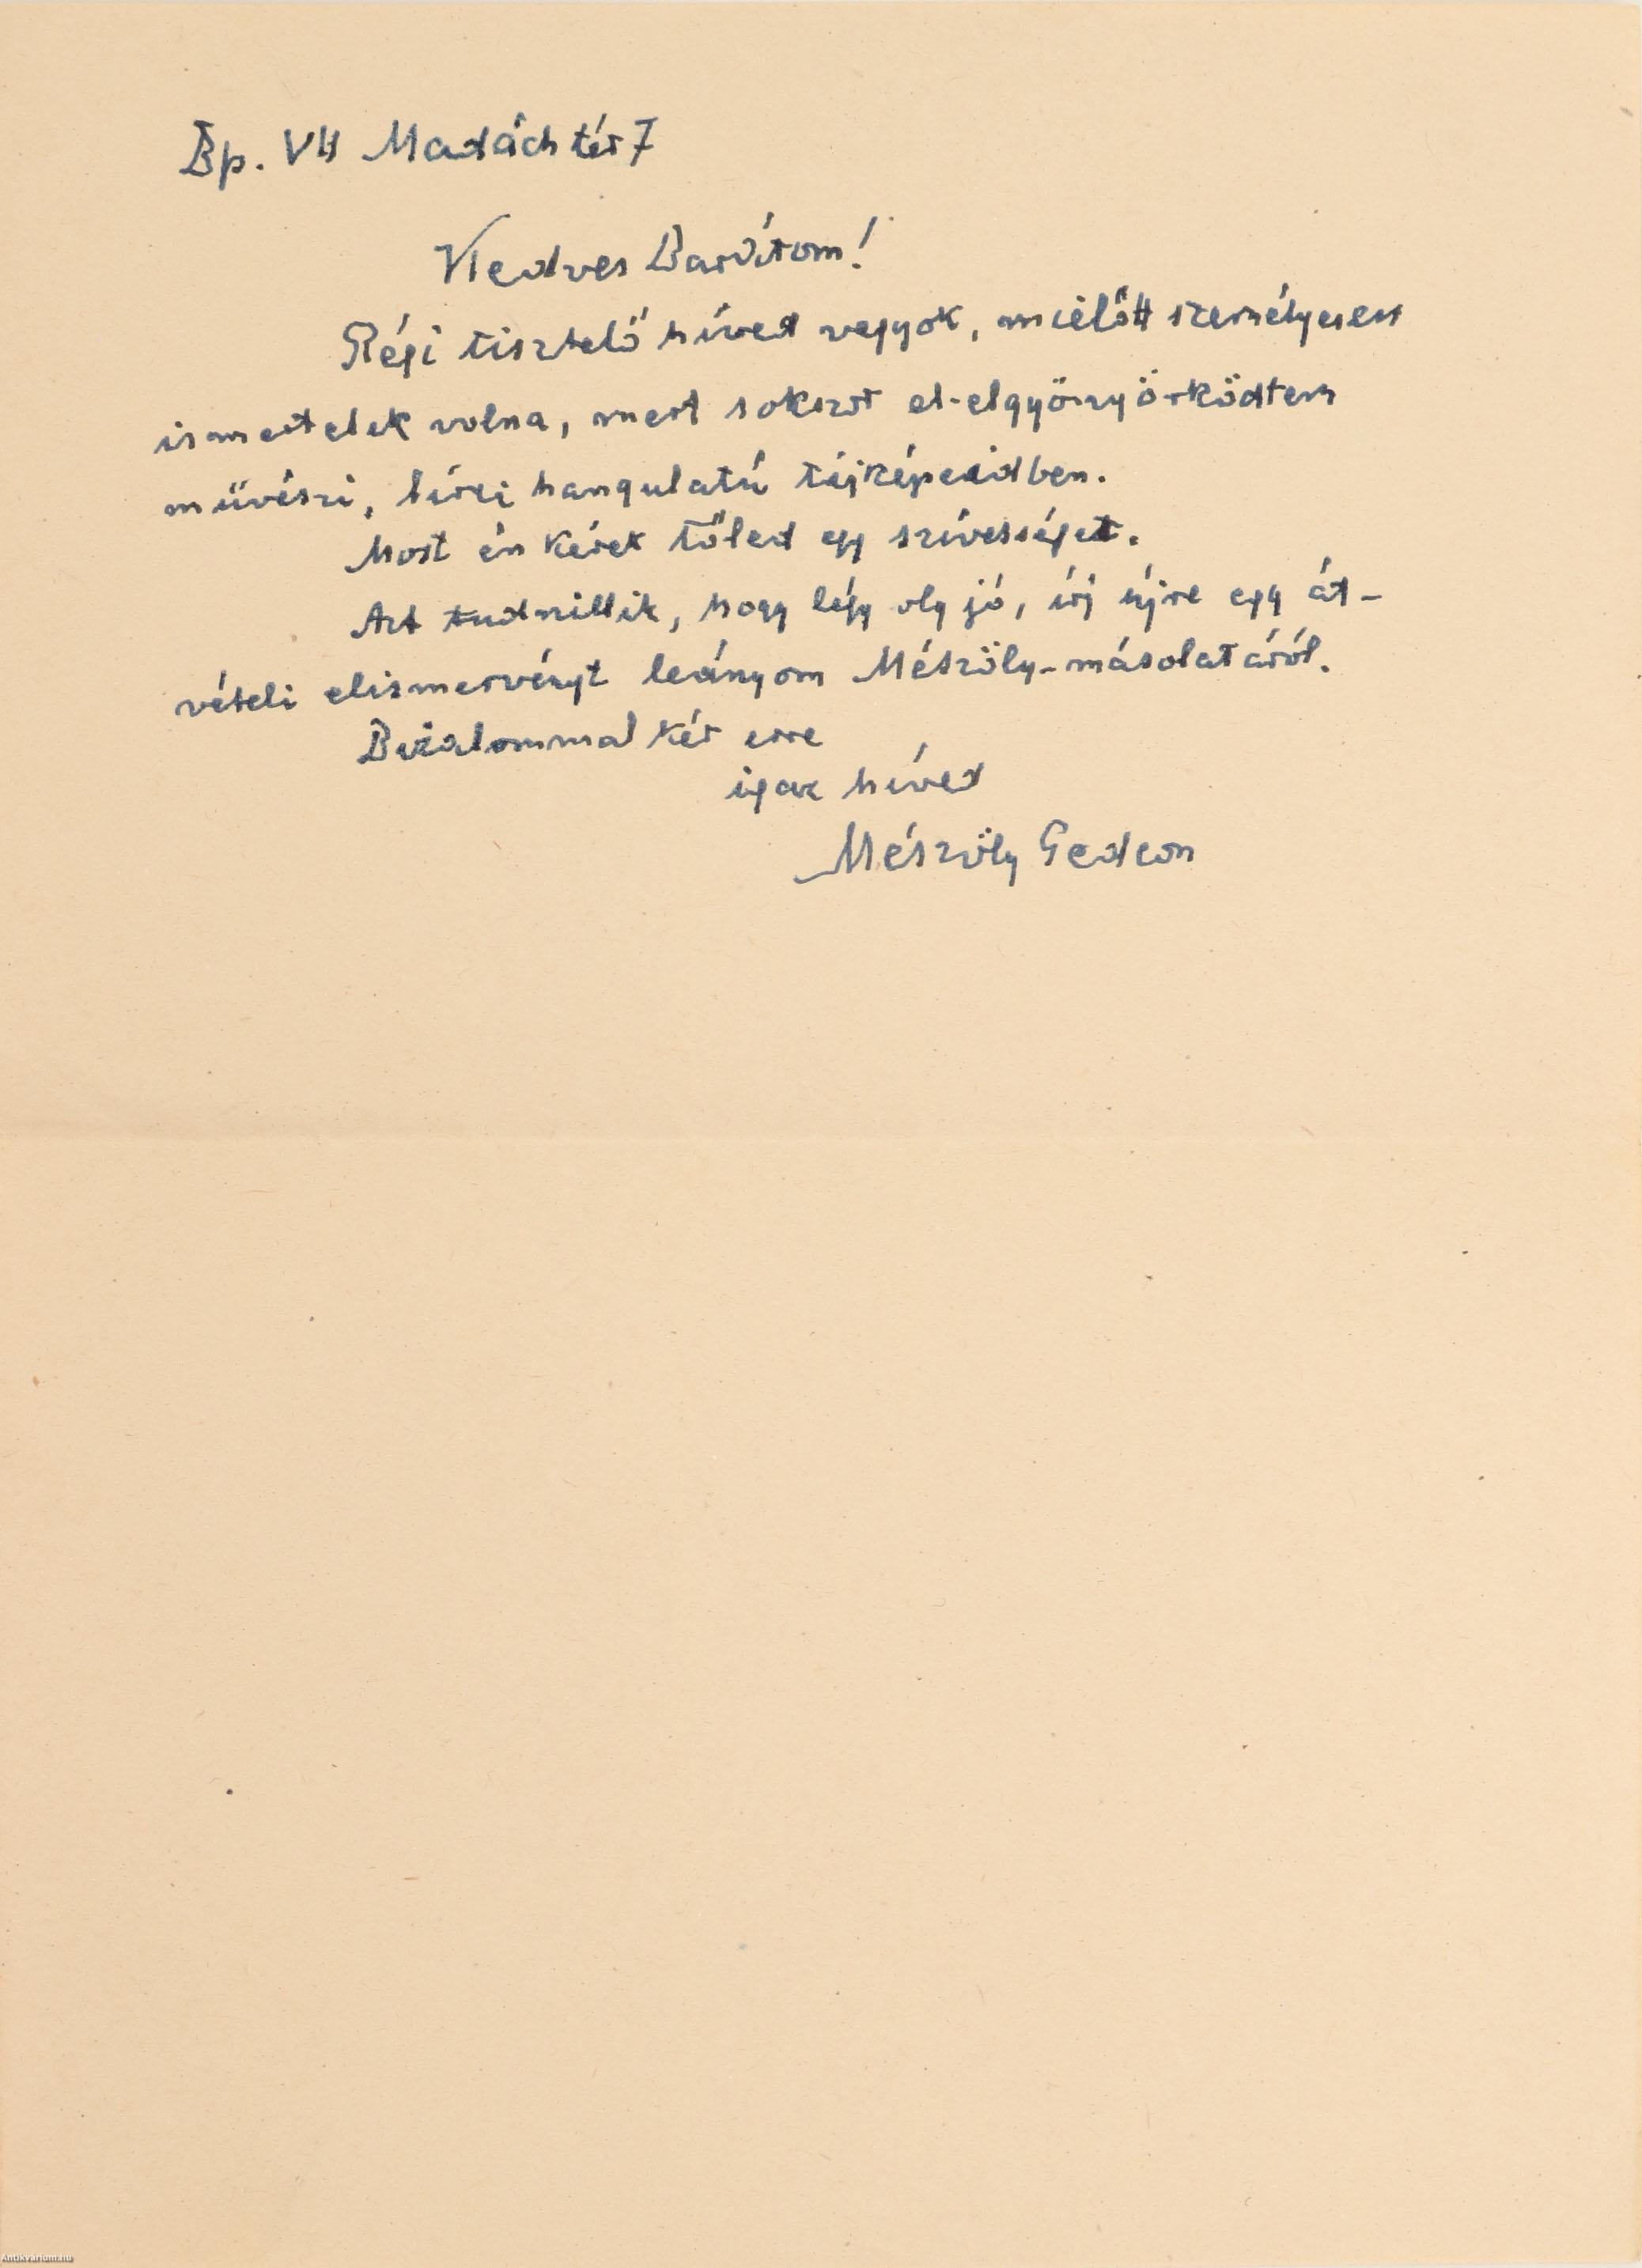 Bp. VII Madách tér 7
Kedves Barátom!
Régi tisztelő híved vagyok, mielőtt személyesen
ismertelek volna, mert sokszor el-elgyönyörködtem
művészi, lírai hangulatú tájképeidben.
Most én kérek tőled egy szívességet.
Azt tudniillik, hogy légy oly jó, írj újra egy át-
vételi elismervényt leányom Mészöly-másolatáról.
Bizalommal kér erre
igaz híved
Mészöly Gedeon
Antikvarium.hu